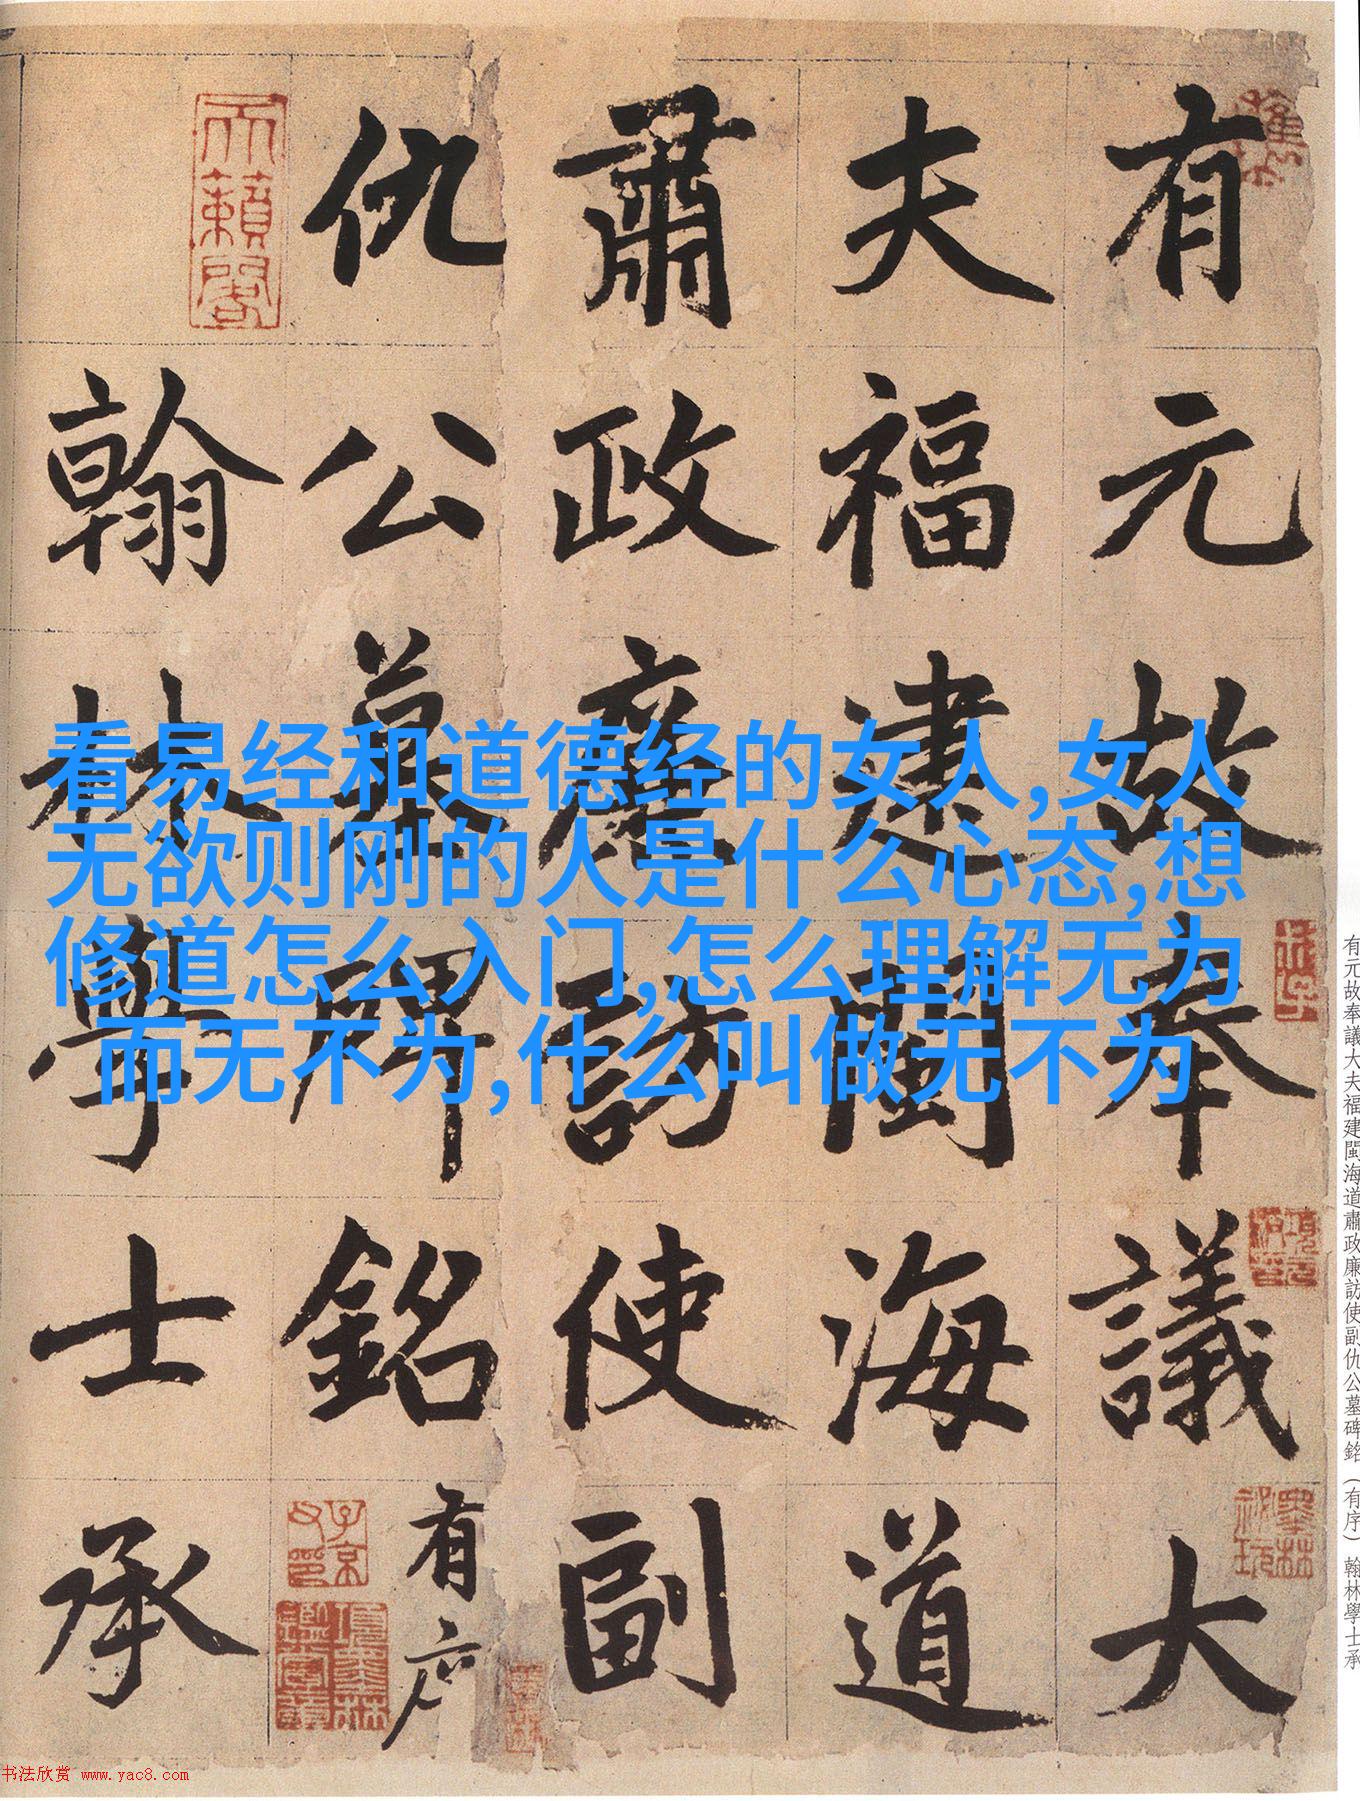 有元故奉議大
夫福建閩海道
肅政廉訪使副
仇公墓碑銘有序
翰林學士承
天籟閣
子京
看易经和道德经的女人,女人
无欲则刚的人是什么心态,想
修道怎么入门,怎么理解无为
而无不为,什么叫做无不为
有元故奉議大夫福建閩海道肅政廉訪使副仇公墓碑銘（有序）翰林學士承
书法欣赏 www.yac8.com